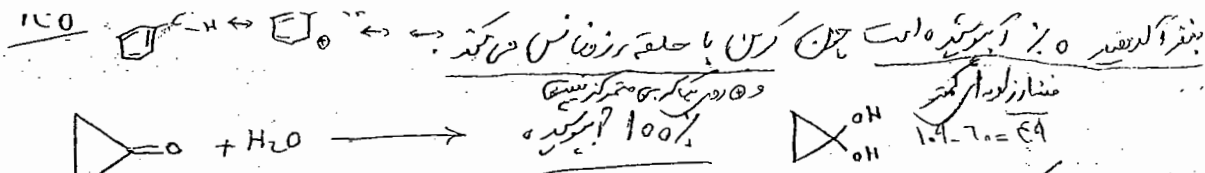 بنزآلدهید ۰٪ آبپوشیده است چون کربن با حلقه رزونانس می‌کند
و ⊕ روی یک کربن متمرکز نیست
فشار زاویه‌ای کمتر
=O + H2O ⟶ 100٪ آبپوشیده OH OH ۱۰۹-۶۰=۴۹